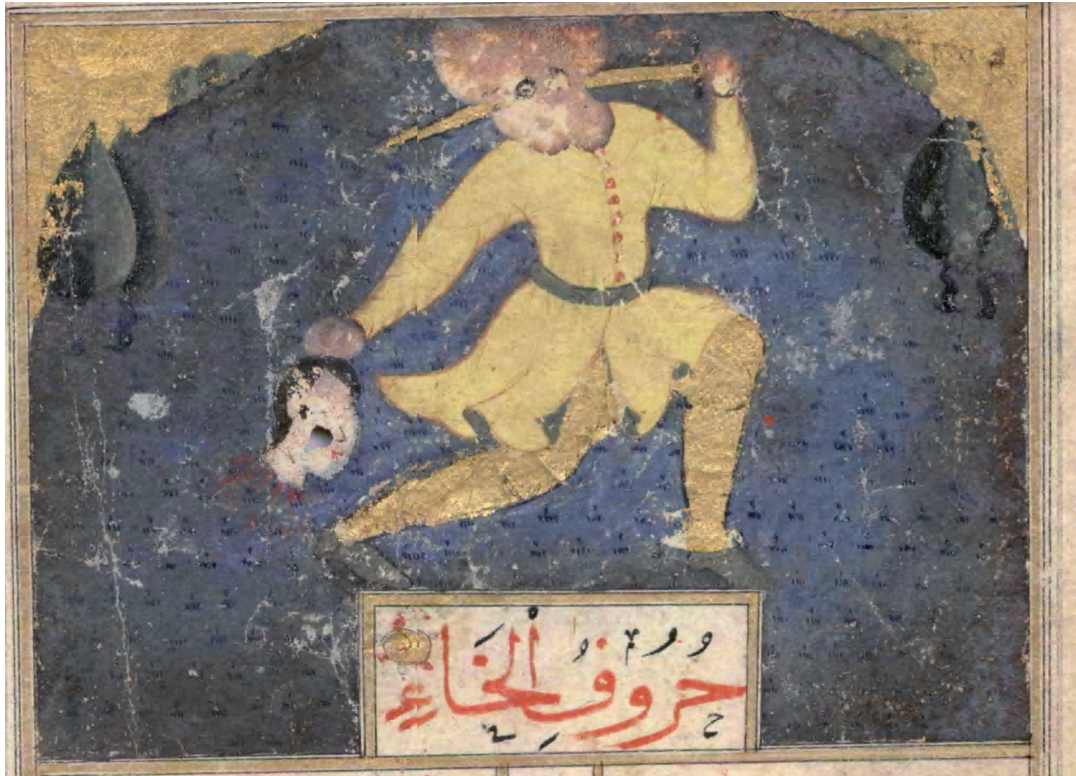 حُرُوفُ الْخَاءِ